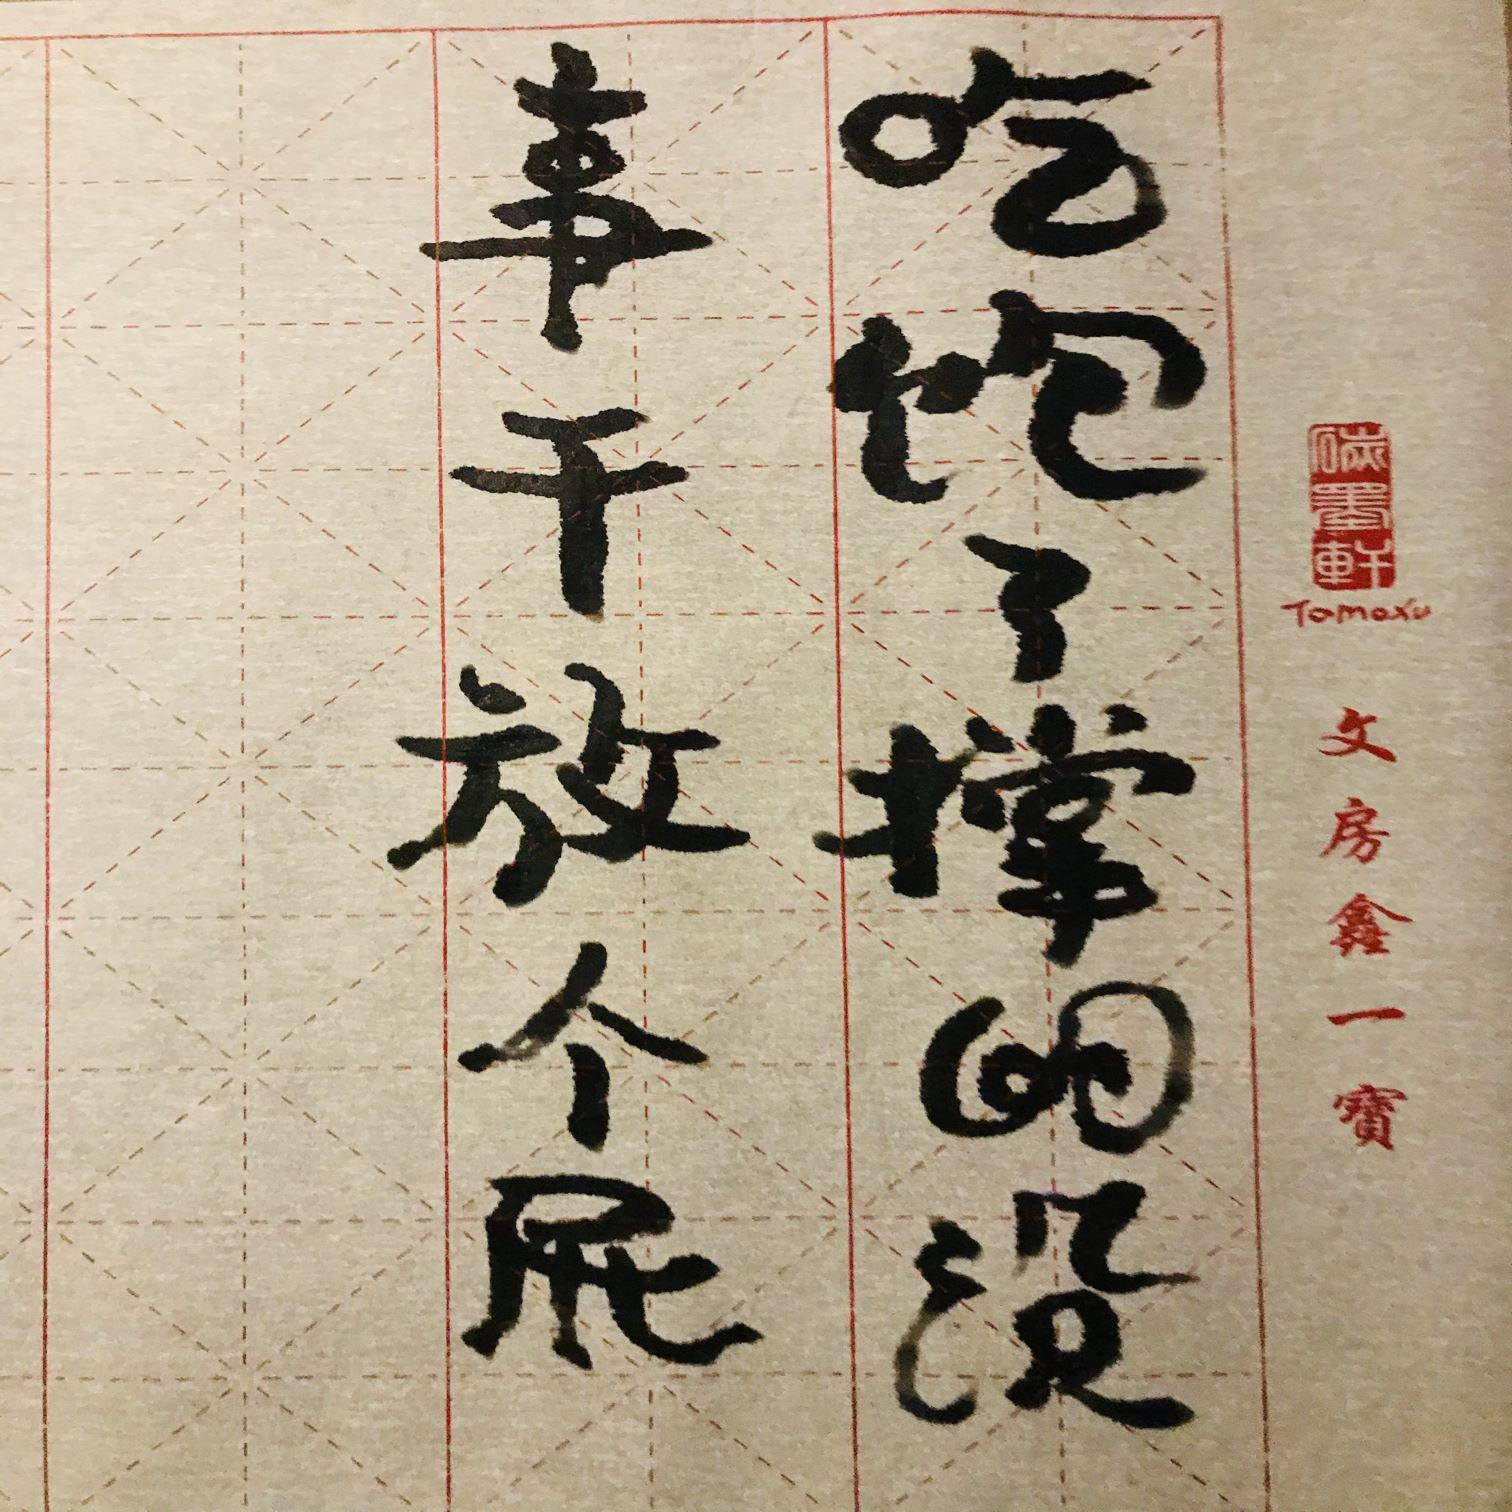 吃饱了撑的没
事干放个屁
碳墨軒
Tomoxu
文房鑫一寶